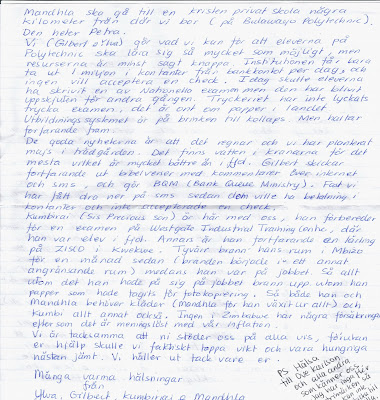 Mandhla ska gå till en kristen privatskola några
kilometer från där vi bor (på Bulawayo Polytechnic).
Den heter Petra.
Vi (Gilbert o Ylva) gör vad vi kan för att eleverna på
Polytechnic ska lära sig så mycket som möjligt, men
resurserna är minst sagt knappa. Institutionen får bara
ta ut 1 miljon i kontanter från bankkontot per dag, och
ingen vill acceptera en check. Idag skulle eleverna
ha skrivit en av Nationella examinen men den har blivit
uppskjuten för andra gången. Tryckeriet har inte lyckats
trycka examen, det är ont om papper i landet.
Utbildningssystemet är på brinken till kollaps. Men haltar
fortfarande fram.
De goda nyheterna är att det regnar och vi har planterat
majs i trädgården. Det finns vatten i kranarna för det
mesta vilket är mycket bättre än i fjol. Gilbert skickar
fortfarande ut bibelverser med kommentarer över internet
och sms, och gör BQM (Bank Queue Ministry). Fast vi
har fått dra ner på sms sedan dom ville ha betalning i
kontanter och inte accepterade en check.
Kumbirai (Sis Precious son) är här med oss, han förbereder
för en examen på Westgate Industrial Training Centre, där
han var elev i fjol. Annars är han fortfarande en lärling
på ZISCO i Kwekwe. Tyvärr brann hans rum i Mbizo
för en månad sedan (branden började i ett annat
angränsande rum) medans han var på jobbet. Så allt
utom det han hade på sig på jobbet brann upp utom hans
papper som hade tagits för fotokopiering. Så både han och
Mandhla behöver kläder (Mandhla för han växit ur allt) och
Kumbi allt annat också. Ingen i Zimbabwe har några försäkringar
eftersom det är meningslöst med vår inflation.
Vi är tacksamma att ni stöder oss på alla vis, förutan
er hjälp skulle vi faktiskt tappa vikt och vara hungriga
nästan jämt. Vi håller ut tack vare er
Många varma hälsningar
från
Ylva, Gilbert, Kumbirai o Mandhla
PS Hälsa
till
och alla andra
som känner oss